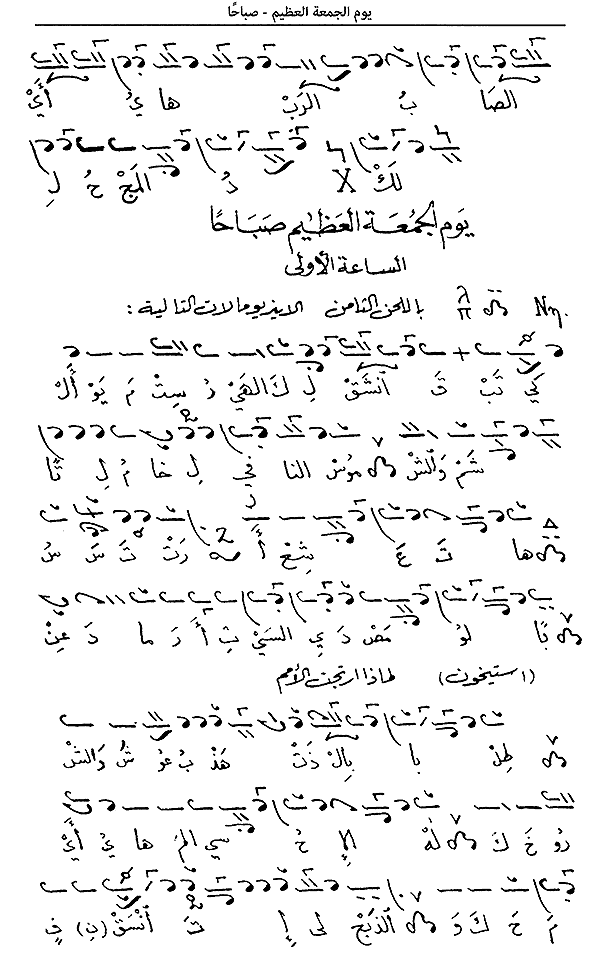 يوم الجمعة العظيم - صباحًا
أَيْ يُ ها الرَبْ بُ الصَا
لِ حُ المَجْ دُ X لَكْ
يَوم الجمُعَة العَظيم صَبَاحًا
الساعة الأولى
باللحن الثامن الايذيومالات التالية : Νη.
أَلْ يَوْ مَ سِتْ رُ الهَيْ كَ لِ انْشَقْ قَ تَبْ كي
تًا لِ مُ خَا لِ في النا مُوسْ وَالْشْ شَمْ
سُ سَ تَ رَتْ أَ شِعْ عَ تَ ها
عِنْ دَ ما رَ أَ تِ السَيْ يِ دَ مَصْ لُو بًا
(استيخون) لماذا ارتجت الأمم
وَالشْ شُ عُو بُ هَذْ ذَتْ بِالْ با طِلْ
أَيْ يُ ها المَ سي حُ الإِ لَهْ كَ خَ رُو
فٍ (نِ) انْسَقْ تَ إِ لى الْذَبْحْ وَ كَ حَ مَ